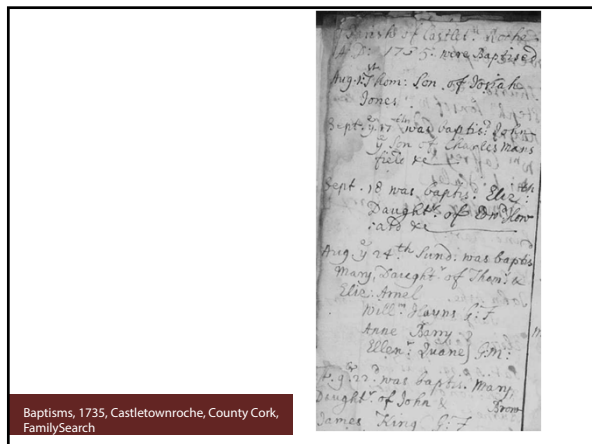 Parish of Castlet:n Roche
A:D: 1735: were Baptised
Aug. 1st Thom: Son of Josiah
Jones
Sept. ye 17th was baptis:d John
ye Son of Charles Mans
field &c
Sept. 18 was baptis: Eliz:th
Daught:r of Edm:d How
:ard &c
Aug ye 24th Sund: was baptis
Mary, Daught:r of Thom: &
Eliz: Arnel
Will:m Hayns G:F
Anne Barry
Ellen:r Quane} G:M:
ye 22d was baptis. Mary,
Daught:r of John & Brow
James King G:F
Baptisms, 1735, Castletownroche, County Cork,
FamilySearch